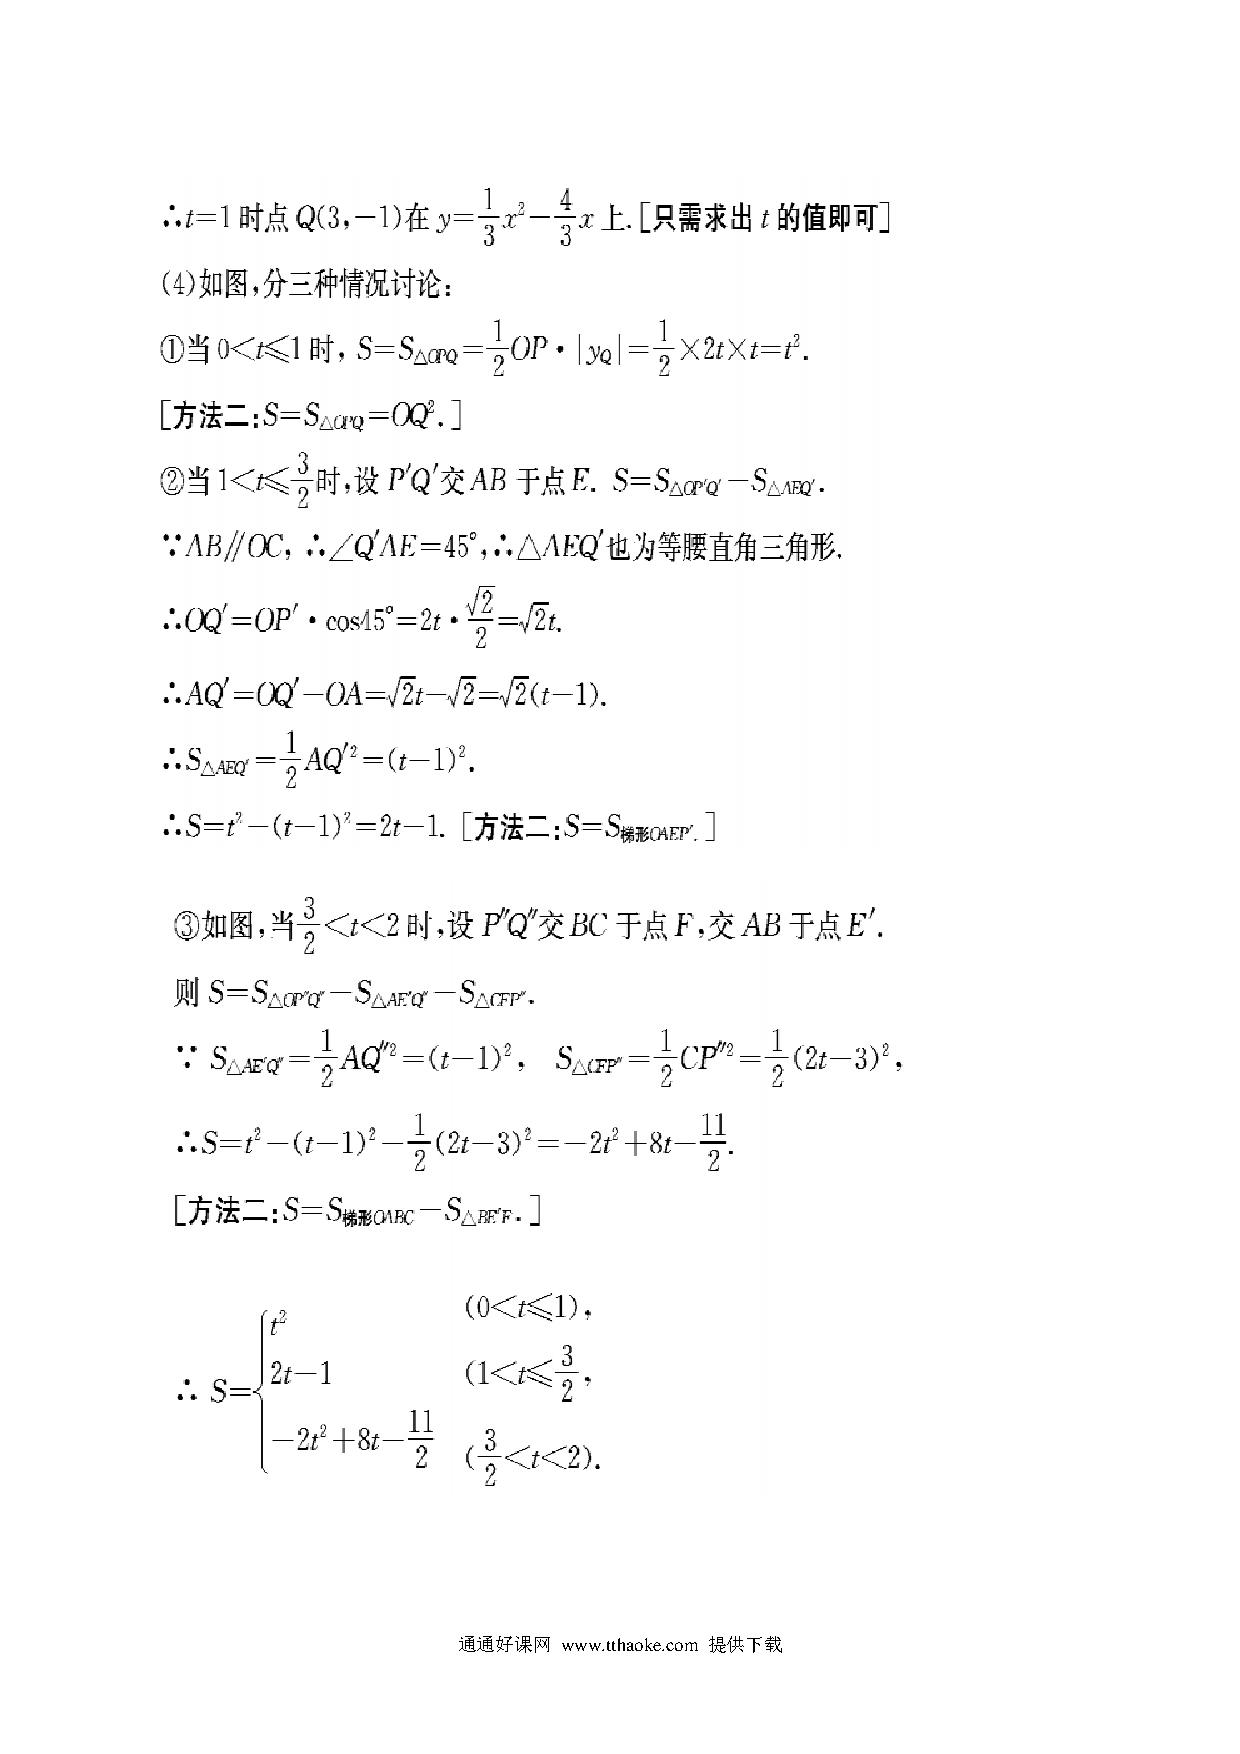 ∴t=1时点Q(3,-1)在y=\frac{1}{3}x²-\frac{4}{3}x上.[只需求出t的值即可]
(4)如图,分三种情况讨论:
①当0<t≤1时, S=S△OPQ=\frac{1}{2}OP·|yQ|=\frac{1}{2}×2t×t=t².
[方法二:S=S△OPQ=OQ².]
②当1<t≤\frac{3}{2}时,设P′Q′交AB于点E. S=S△OP′Q′-S△AEQ′.
∵AB∥OC, ∴∠Q′AE=45°,∴△AEQ′也为等腰直角三角形.
∴OQ′=OP′·cos45°=2t·\frac{√2}{2}=√2t.
∴AQ′=OQ′-OA=√2t-√2=√2(t-1).
∴S△AEQ′=\frac{1}{2}AQ′²=(t-1)².
∴S=t²-(t-1)²=2t-1. [方法二:S=S梯形OAEP′.]
③如图,当\frac{3}{2}<t<2时,设P″Q″交BC于点F,交AB于点E′.
则S=S△OP″Q″-S△AE′Q″-S△CFP″.
∵ S△AE′Q″=\frac{1}{2}AQ″²=(t-1)², S△CFP″=\frac{1}{2}CP″²=\frac{1}{2}(2t-3)²,
∴S=t²-(t-1)²-\frac{1}{2}(2t-3)²=-2t²+8t-\frac{11}{2}.
[方法二:S=S梯形OABC-S△BE′F.]
∴ S={t² (0<t≤1),
2t-1 (1<t≤\frac{3}{2},
-2t²+8t-\frac{11}{2} (\frac{3}{2}<t<2).
通通好课网 www.tthaoke.com 提供下载